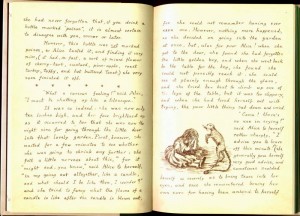 she had never forgotten that, if you drink a
bottle marked "poison", it is almost certain
to disagree with you, sooner or later.
However, this bottle was not marked
poison, so Alice tasted it, and finding it very
nice, (it had, in fact, a sort of mixed flavour
of cherry-tart, custard, pine-apple, roast
turkey, toffy, and hot buttered toast,) she very
soon finished it off.
* * * * *
"What a curious feeling!" said Alice,
"I must be shutting up like a telescope."
It was so indeed: she was now only
ten inches high, and her face brightened up
as it occurred to her that she was now the
right size for going through the little door
into that lovely garden. First, however, she
waited for a few minutes to see whether
she was going to shrink any further: she
felt a little nervous about this, "for it
might end, you know," said Alice to herself,
"in my going out altogether, like a candle,
and what should I be like then, I wonder?"
and she tried to fancy what the flame of a
candle is like after the candle is blown out,
for she could not remember having ever
seen one. However, nothing more happened,
so she decided on going into the garden
at once, but, alas for poor Alice! when she
got to the door, she found she had forgotten
the little golden key, and when she went back
to the table for the key, she found she
could not possibly reach it: she could
see it plainly enough through the glass,
and she tried her best to climb up one of
the legs of the table, but it was too slippery,
and when she had tired herself out with
trying, the poor little thing sat down and cried.
"Come! there's
no use in crying!"
said Alice to herself
rather sharply, "I
advise you to leave
off this minute!" (she
generally gave herself
very good advice, and
sometimes scolded
herself so severely as to bring tears into her
eyes, and once she remembered boxing her
own ears for having been unkind to herself